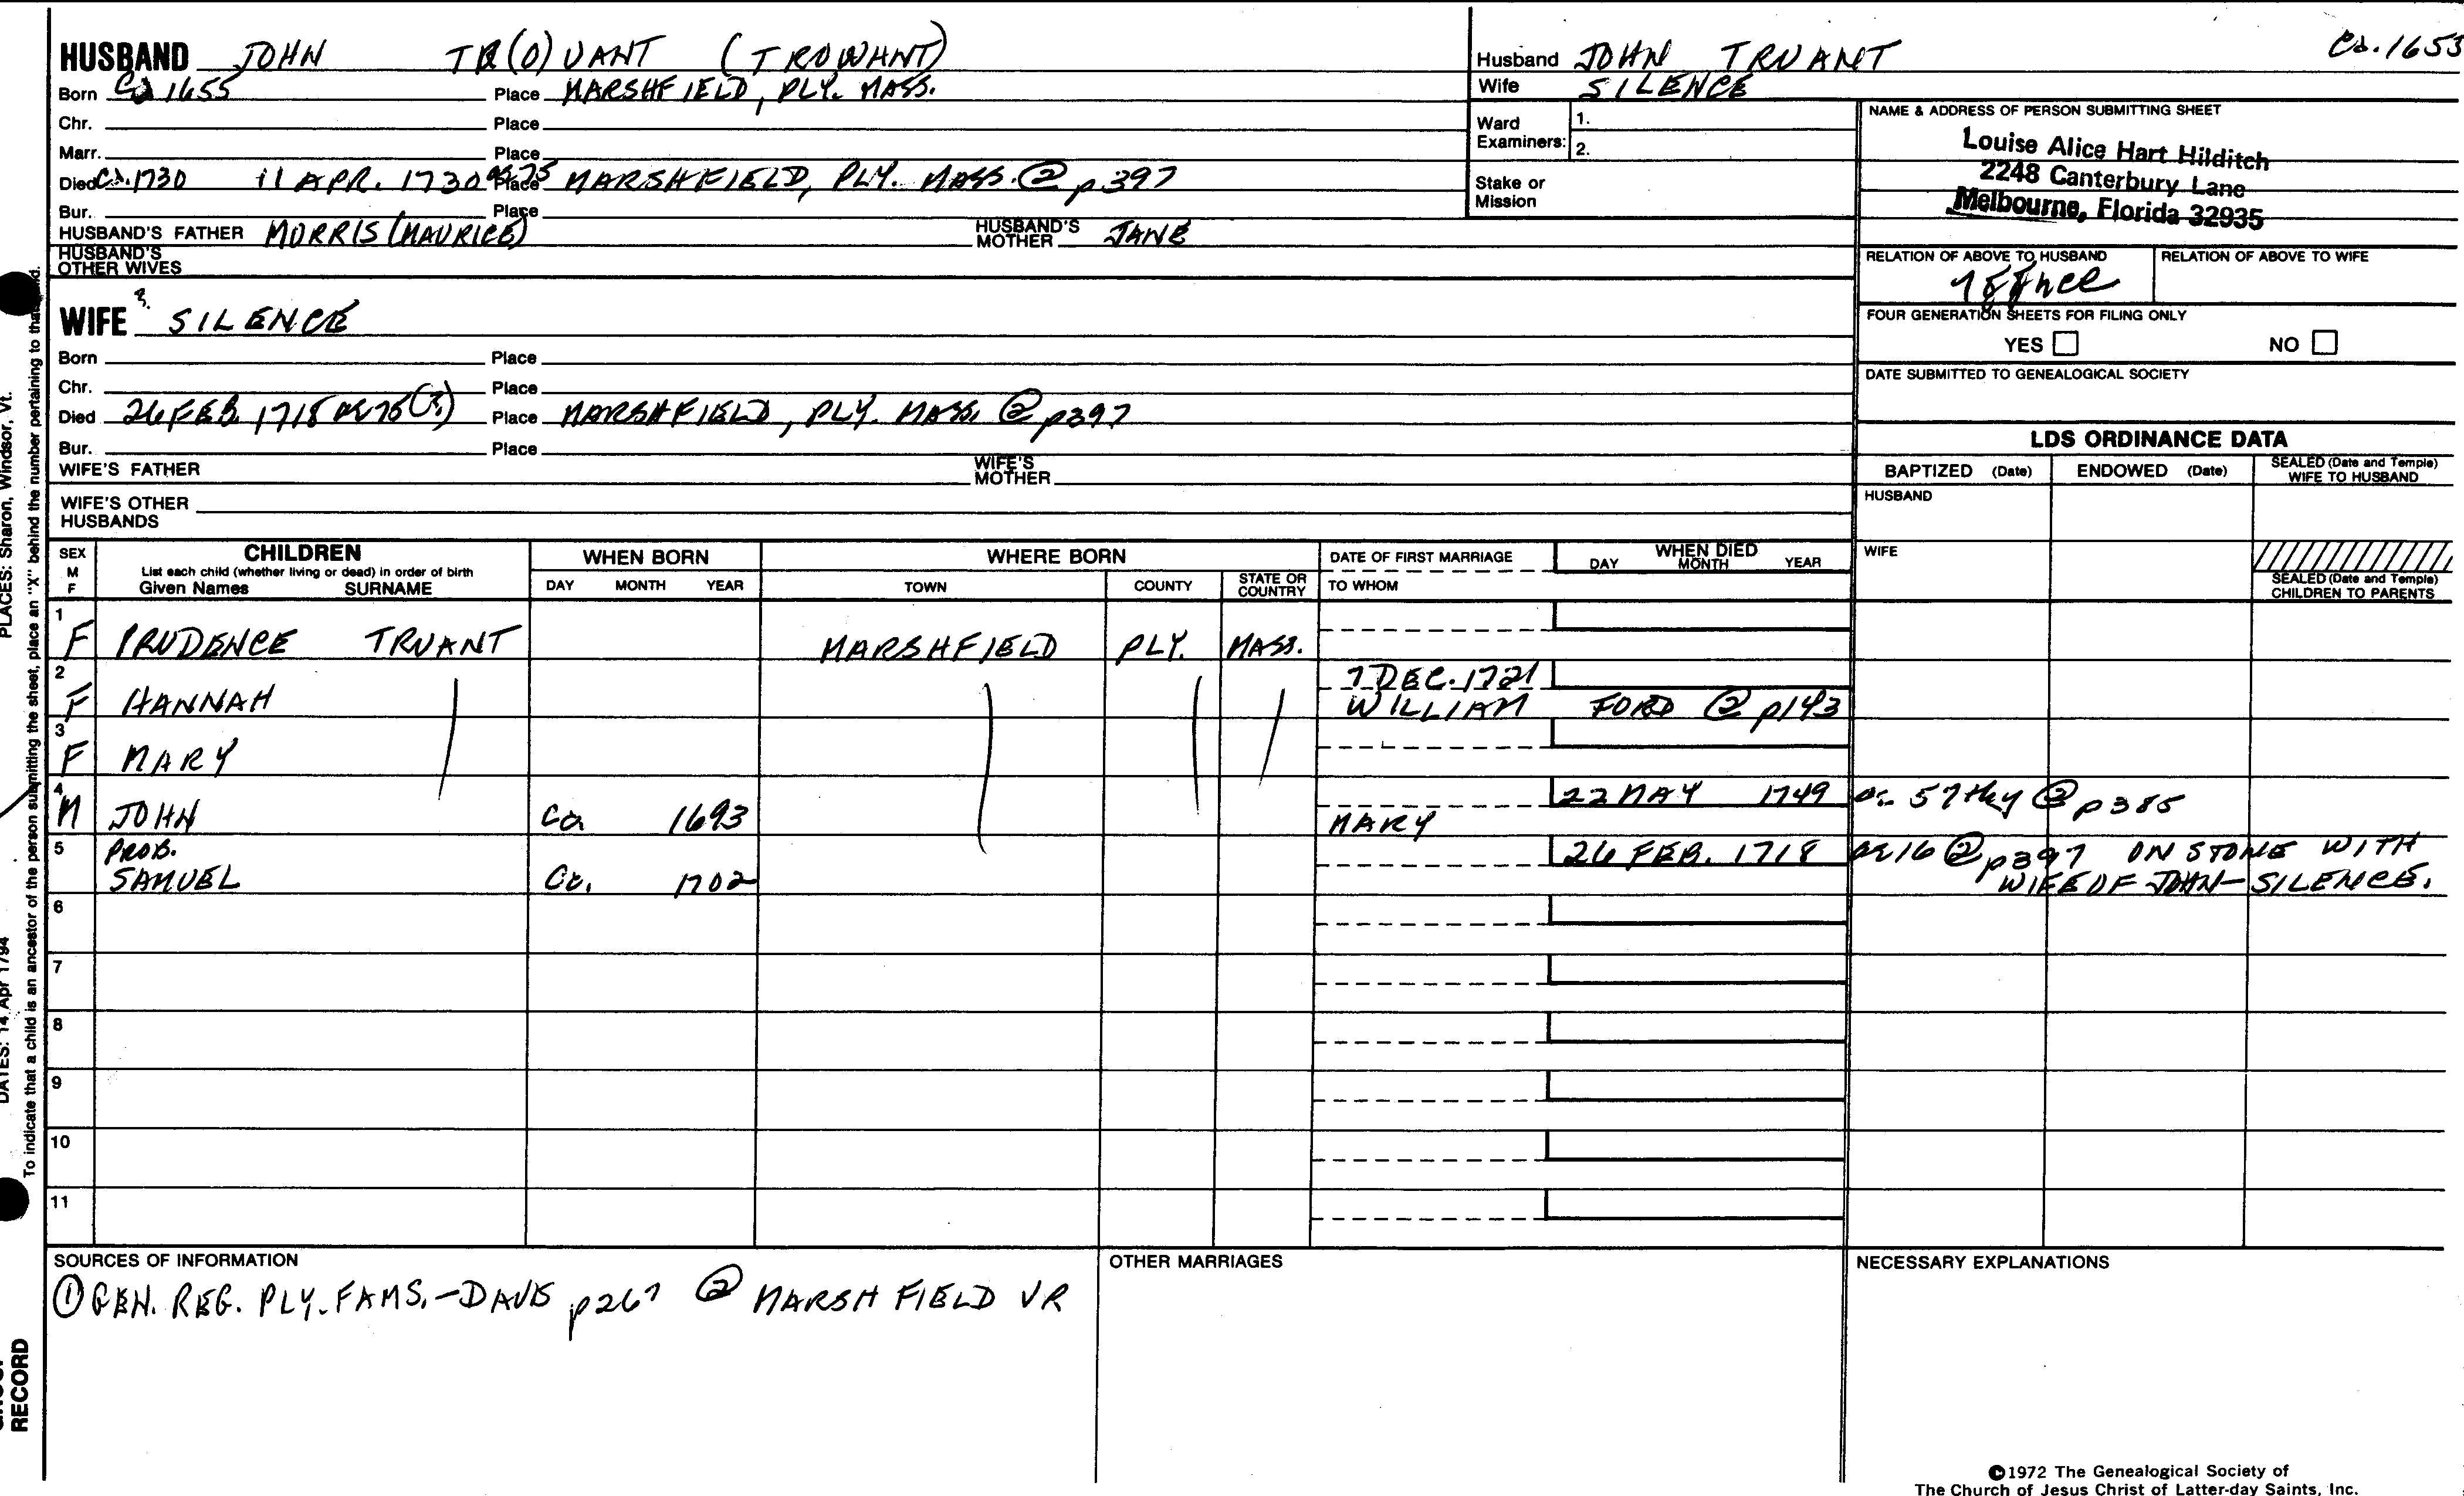 HUSBAND JOHN TR(O)UANT (TROWANT)
Born Ca 1655 Place MARSHFIELD, PLY. MASS.
Chr. Place
Marr. Place
Died Ca. 1730 11 APR. 1730 ae 75 Place MARSHFIELD, PLY. MASS. ② p397
Bur. Place
HUSBAND'S FATHER MORRIS (MAURICE) HUSBAND'S MOTHER JANE
HUSBAND'S OTHER WIVES
WIFE ? SILENCE
Born Place
Chr. Place
Died 26 FEB. 1718 ae 75(?) Place MARSHFIELD, PLY. MASS. ② p397
Bur. Place
WIFE'S FATHER WIFE'S MOTHER
WIFE'S OTHER HUSBANDS
Husband JOHN TRUANT Ca. 1653
Wife SILENCE
Ward Examiners: 1.
2.
Stake or Mission
NAME & ADDRESS OF PERSON SUBMITTING SHEET
Louise Alice Hart Hilditch
2248 Canterbury Lane
Melbourne, Florida 32935
RELATION OF ABOVE TO HUSBAND RELATION OF ABOVE TO WIFE
FOUR GENERATION SHEETS FOR FILING ONLY
YES NO
DATE SUBMITTED TO GENEALOGICAL SOCIETY
LDS ORDINANCE DATA
BAPTIZED (Date) ENDOWED (Date) SEALED (Date and Temple) WIFE TO HUSBAND
HUSBAND
WIFE
SEALED (Date and Temple) CHILDREN TO PARENTS
SEX M F CHILDREN WHEN BORN WHERE BORN DATE OF FIRST MARRIAGE WHEN DIED
List each child (whether living or dead) in order of birth
Given Names SURNAME DAY MONTH YEAR TOWN COUNTY STATE OR COUNTRY TO WHOM DAY MONTH YEAR
1 F PRUDENCE TRUANT MARSHFIELD PLY. MASS.
2 F HANNAH 7 DEC. 1721
WILLIAM FORD ② p143
3 F MARY
4 M JOHN Ca 1693 MARY 22 MAY 1749 ae 57thy ② p385
5 PROB. SAMUEL Ca. 1702 26 FEB. 1718 ae 16 ② p397 ON STONE WITH
WIFE OF JOHN-SILENCE.
6
7
8
9
10
11
SOURCES OF INFORMATION
① GEN. REG. PLY. FAMS.-DAVIS p267 ② MARSHFIELD VR
OTHER MARRIAGES
NECESSARY EXPLANATIONS
©1972 The Genealogical Society of
The Church of Jesus Christ of Latter-day Saints, Inc.
PLACES: Sharon, Windsor, Vt.
DATES: 14 Apr 1794
To indicate that a child is an ancestor of the person submitting the sheet, place an "X" behind the number pertaining to that
RECORD